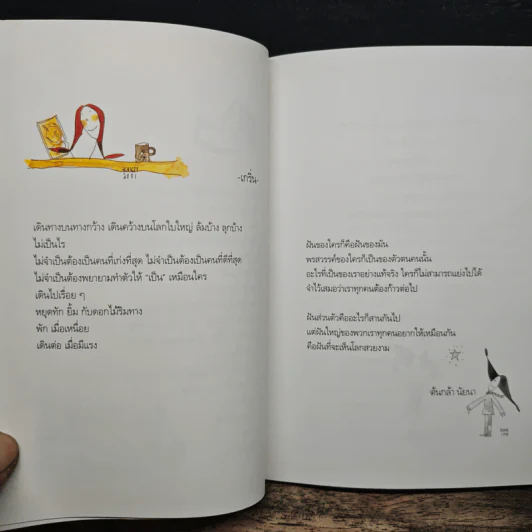 -เกริ่น-
เดินทางบนทางกว้าง เดินคว้างบนโลกใบใหญ่ ล้มบ้าง ลุกบ้าง
ไม่เป็นไร
ไม่จำเป็นต้องเป็นคนที่เก่งที่สุด ไม่จำเป็นต้องเป็นคนที่ดีที่สุด
ไม่จำเป็นต้องพยายามทำตัวให้ "เป็น" เหมือนใคร
เดินไปเรื่อย ๆ
หยุดทัก ยิ้ม กับดอกไม้ริมทาง
พัก เมื่อเหนื่อย
เดินต่อ เมื่อมีแรง
ฝันของใครก็คือฝันของมัน
พรสวรรค์ของใครก็เป็นของตัวตนคนนั้น
อะไรที่เป็นของเราอย่างแท้จริง ใครก็ไม่สามารถแย่งไปได้
จำไว้เสมอว่าเราทุกคนต้องก้าวต่อไป
ฝันส่วนตัวคืออะไรก็สานกันไป
แต่ฝันใหญ่ของพวกเราทุกคนอยากให้เหมือนกัน
คือฝันที่จะเห็นโลกสวยงาม
ต้นกล้า นัยนา